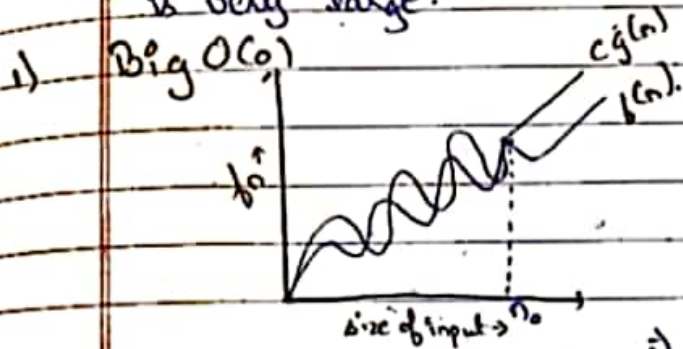 is very large.
1) Big O(o)
cg(n)
f(n).
fn↑
size of input → n₀